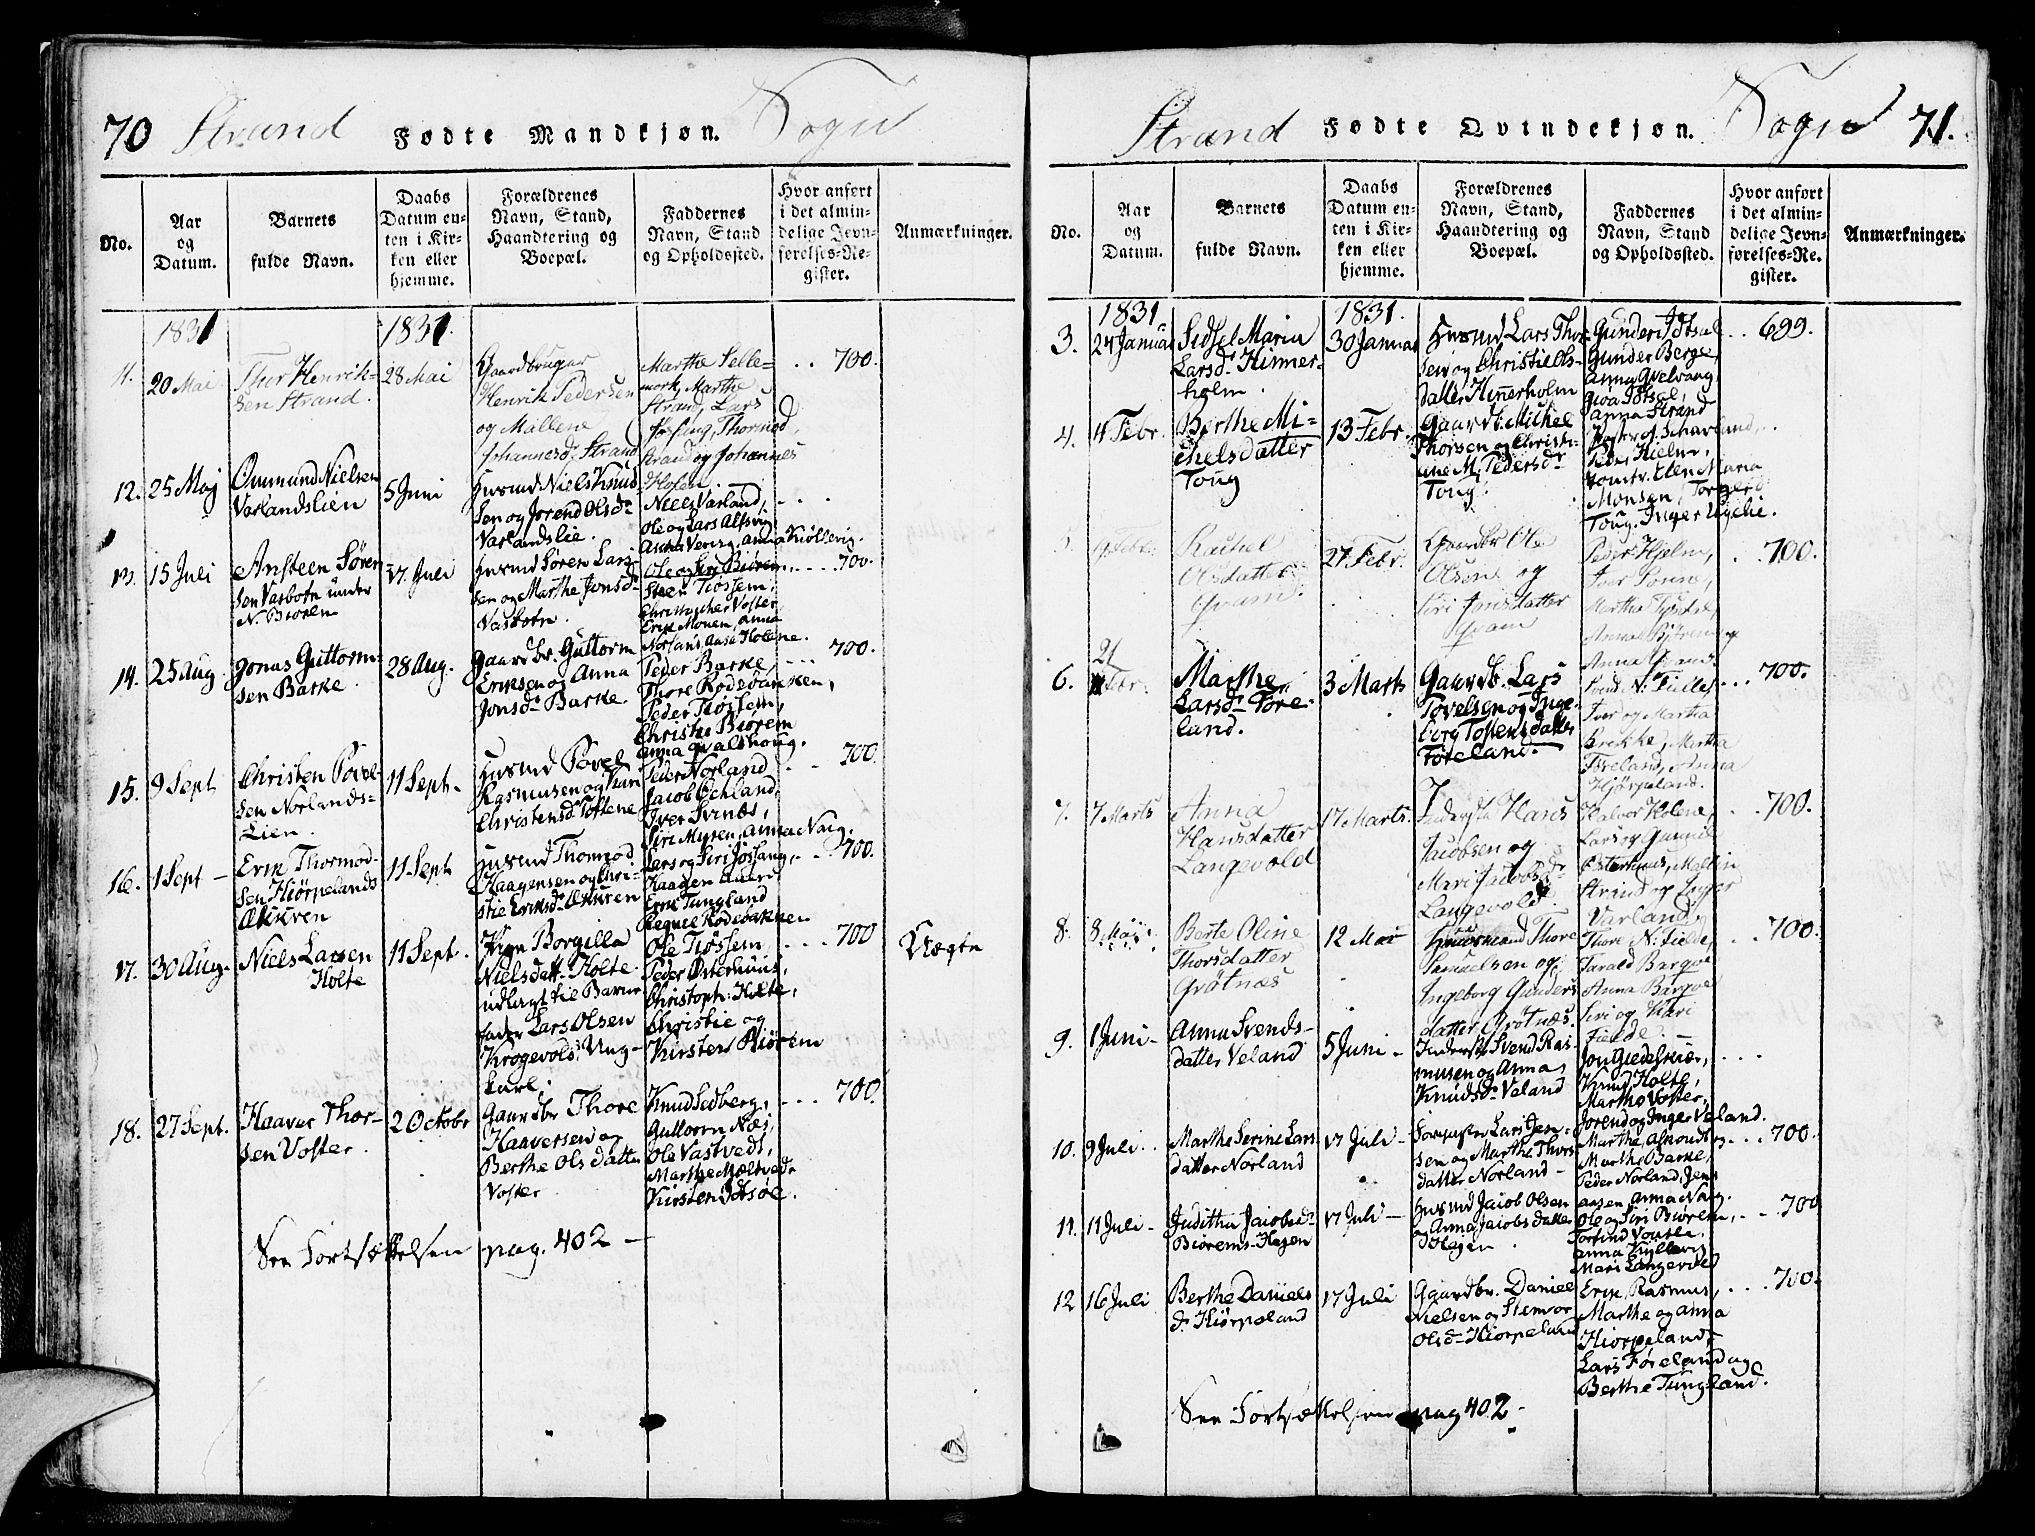 70 Strand Fødte Mandkjøn. Sogn
No.
Aar
og
Datum.
Barnets
fulde Navn.
Daabs
Datum en-
ten i Kir-
ken eller
hjemme.
Forældrenes
Navn, Stand,
Haandtering og
Boepæl.
Faddernes
Navn, Stand
og Opholdssted.
Hvor anført
i det almin-
delige Jevn-
førelses-Re-
gister.
Anmærkninger.
1831
1831.
11.
20 Mai
Thor Henrik-
sen Strand.
28 Mai
Gaardbruger
Henrik Pedersen
og Mallene
Johannesd. Strand
Marthe Selle-
mork, Marthe
Strand, Lars
Jøssang, Thormod
Strand og Johannes
Holen
700.
12.
25 Maj
Ommund Nielsen
Varlandslien
5 Juni
Husmd Niels Knud-
sen og Jorend Olsd.
Varlandslie.
Niels Varland,
Ole og Lars Alsvig,
Anna Kiøllevig.
13.
15 Juli
Ansteen Søren-
sen Vasbotn under
N. Biøren
17 Juli
Husmd Søren Lars-
sen og Marthe Jonsd.
Vasbotn.
Ole og Siri Biørem,
Steen Tiøstem,
Christopher Voster,
Erik Monen, Anna
Norland Aase Holene.
700.
14.
25 Aug
Jonas Guttorm-
sen Barke
28 Aug.
Gaardbr. Guttorm
Eriksen og Anna
Jonsd. Barke.
Peder Barke,
Thore Rødebakken,
Peder Tiøstem,
Christie Biørem
Anna Qvalshoug.
700.
15.
9 Sept
Christen Povel-
sen Norlands-
Lien.
11 Sept.
Husmd Povel
Rasmusen og Kari
Christensd Toftene
Peder Norland
Jacob Ochland,
Iver Svinæs,
Siri Myren, Anna Nag.
700.
16.
1 Sept
Erik Thormod-
sen Hiørpelands
Ækren
11 Sept
Husmd Thormod
Haagensen og Chri-
stie Eriksd. Ækren
Lars og Siri Jøssang,
Haagen
Erik Tungland
Rødebakken
700.
17.
30 Aug.
Niels Larsen
Holte
11 Sept.
Pigen Borgilla
Nielsdatt. Holte
udlagt til Barne-
fader Lars Olsen
Krogevold, Ung-
karl.
Ole Tiøssem
Peder Østerhuus,
Christoph: Holte,
Christie og
Kirsten Biørem
700
Uægte
18.
27 Sept.
Haaver Thor-
sen Voster.
2 Octobr
Gaardbr Thore
Haaversen og
Berthe Olsdatter
Voster
Knud Sedberg,
Guttorm Næs,
Ole Vastvedt,
Marthe Meltvedt
Kirsten Idsøe.
700.
See Fortsættelsen pag. 402
Strand Fødte Qvindekjøn. Sogn 71.
No.
Aar
og
Datum.
Barnets
fulde Navn.
Daabs
Datum en-
ten i Kir-
ken eller
hjemme.
Forældrenes
Navn, Stand,
Haandtering og
Boepæl.
Faddernes
Navn, Stand
og Opholdssted.
Hvor anført
i det almin-
delige Jevn-
førelses-Re-
gister.
Anmærkninger.
1831
1831.
3.
24 Januar
Sidsel Maria
Larsd. Himmer-
holm.
30 Januar
Husmd Lars Thor-
sen og Christie Ols-
datter Himerholm
Gunder Idtsal
Gunder Berge
Anna Qvelvang
Idtsal,
Anna Strand
699.
4.
4 Febr.
Berthe Mi-
chelsdatter
Toug
13 Febr.
Gaardb: Michel
Thorsen og Christi-
ine M. Pedersd.
Toug.
Scharland,
Peder Hielm,
Jomfr. Elen Maria
Monsen, Torger
Toug. Inger Liglie.
5.
19 Febr.
Rachel
Olsdatter
Qvam.
27 Febr.
Gaardbr Ole
Olsone og
Siri Jonsdatter
Qvam
Peder Hjelm,
Iver Sonne,
Martha
Anna Bjørem og
Anna
700.
6.
21
Febr.
Marthe
Larsd. Føre-
land.
3 Marts
Gaardb. Lars
Tovelsen og Inge-
borg Tostensdatter
Føreland.
Svend N: Fielle
Iver og Martha
Brekke, Martha
Føreland, Anna
Hjørpeland.
700.
7.
7 Marts
Anna
Hansdatter
Langevold
17 Marts.
Inderste Hans
Jacobsen og
Mari Jacobsdr
Langevold.
Halvor Holene,
Lars og Gunnil
Østerhuus, Malkin
Strand og Inger
Varland,
700.
8.
8 Maji
Berte Oline
Thorsdatter
Grøtnæs
12 Mai
Huusmand Thore
Samuelsen og
Ingeborg Gunders
datter Grøtnæs.
Thore N: Fielde,
Tarald Bargve
Anna Bargve
Siri og Kari
Fielde.
700.
9.
1 Juni
Anna Svends-
datter Veland
5 Juni
Inderste Svend Ras-
musen og Anna
Knudsd. Veland
Jon Giedeskiær,
Knud Holte,
Marthe Voster,
Jorend og Inger Veland.
10.
9 Juli
Marthe Serine Lars
datter Norland
17 Juli
Lars Jen-
sen og Marthe Thors
datter Norland
Marthe
Marthe Barke,
Peder Norland, Jens
Aasen Anna Nag.
700.
11.
11 Juli
Juditha Jacobsd.
Biørems-Hagen
17 Juli
Husmd Jacob Olsen
Anna Jacobsdatter
Hagen
Ole og Siri Biørem,
Torfind
Anna Kyllevig
Mari Langevold
700
12
16 Juli
Berthe Daniels
d. Hiørpeland
17 Juli
Gaardbr. Daniel
Nielsen og Stemor
Olsd. Hiorpeland
Erik, Rasmus,
Marthe og Anna
Hiorpeland,
Lars Føreland og
Berthe Tungland.
700.
See Fortsættelsen pag 402